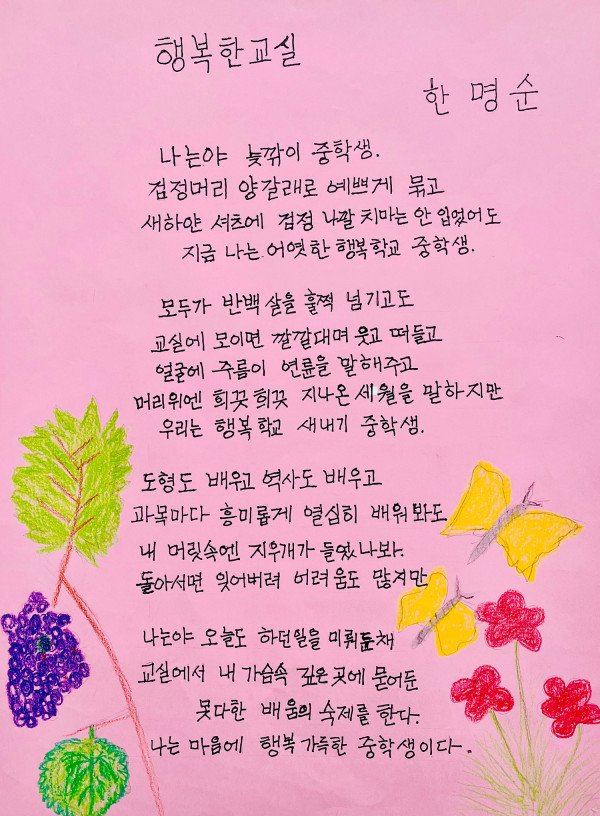 행복한교실
한 명 순
나는야 늦깎이 중학생.
검정머리 양갈래로 예쁘게 묶고
새하얀 셔츠에 검정 나팔 치마는 안 입었어도
지금 나는 어엿한 행복학교 중학생.
모두가 반백 살을 훌쩍 넘기고도
교실에 모이면 깔깔대며 웃고 떠들고
얼굴에 주름이 연륜을 말해주고
머리위엔 희끗희끗 지나온 세월을 말하지만
우리는 행복학교 새내기 중학생.
도형도 배우고 역사도 배우고
과목마다 흥미롭게 열심히 배워봐도
내 머릿속엔 지우개가 들었나봐.
돌아서면 잊어버려 어려움도 많겨만
나는야 오늘도 하던일을 미뤄둔채
교실에서 내 가슴속 깊은 곳에 묻어둔
못다한 배움의 숙제를 한다.
나는 마음에 행복 가득한 중학생이다.